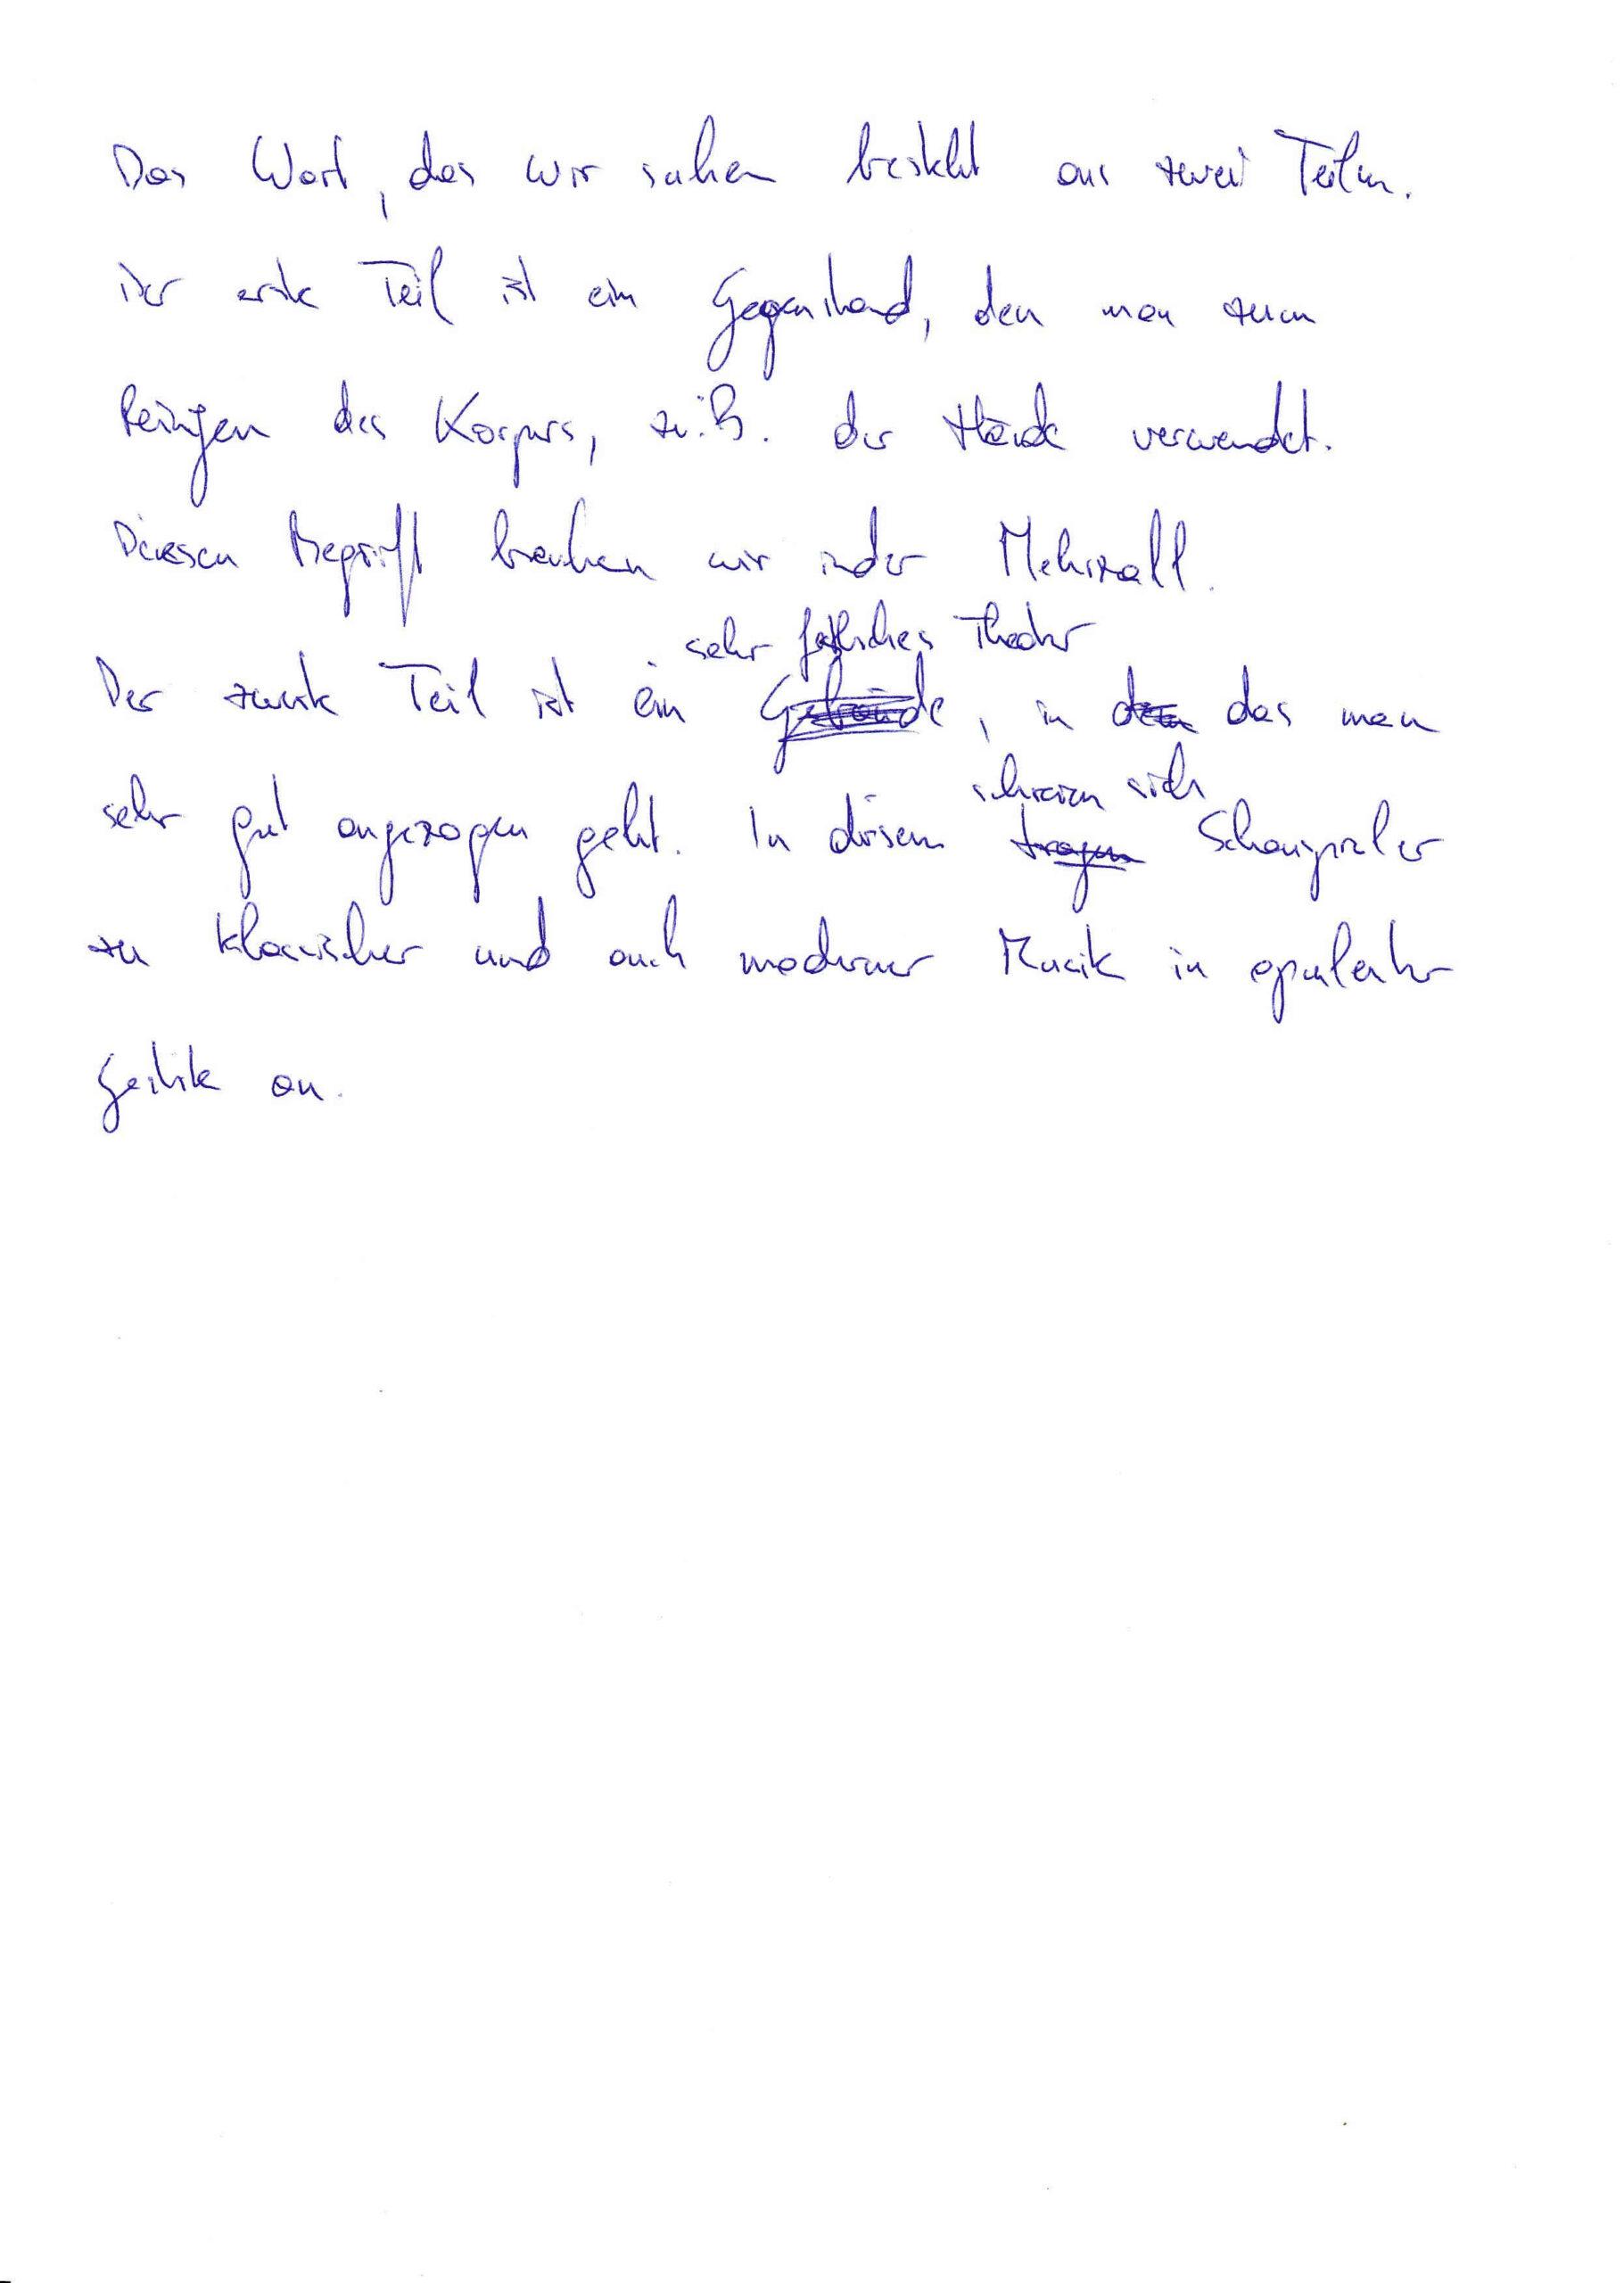 Das Wort, das wir suchen besteht aus zwei Teilen.
Der erste Teil ist ein Gegenstand, den man zum
Reinigen des Korpus, z.B. der Hände verwendet.
Diesen Begriff brauchen wir in der Mehrzahl.
sehr festliches Theater
Der zweite Teil ist ein Gebäude, in dem das man
schreien sich
sehr gut angezogen geht. In diesem tragen Schauspieler
zu klassischer und auch moderner Musik in opulenter
Gestik an.